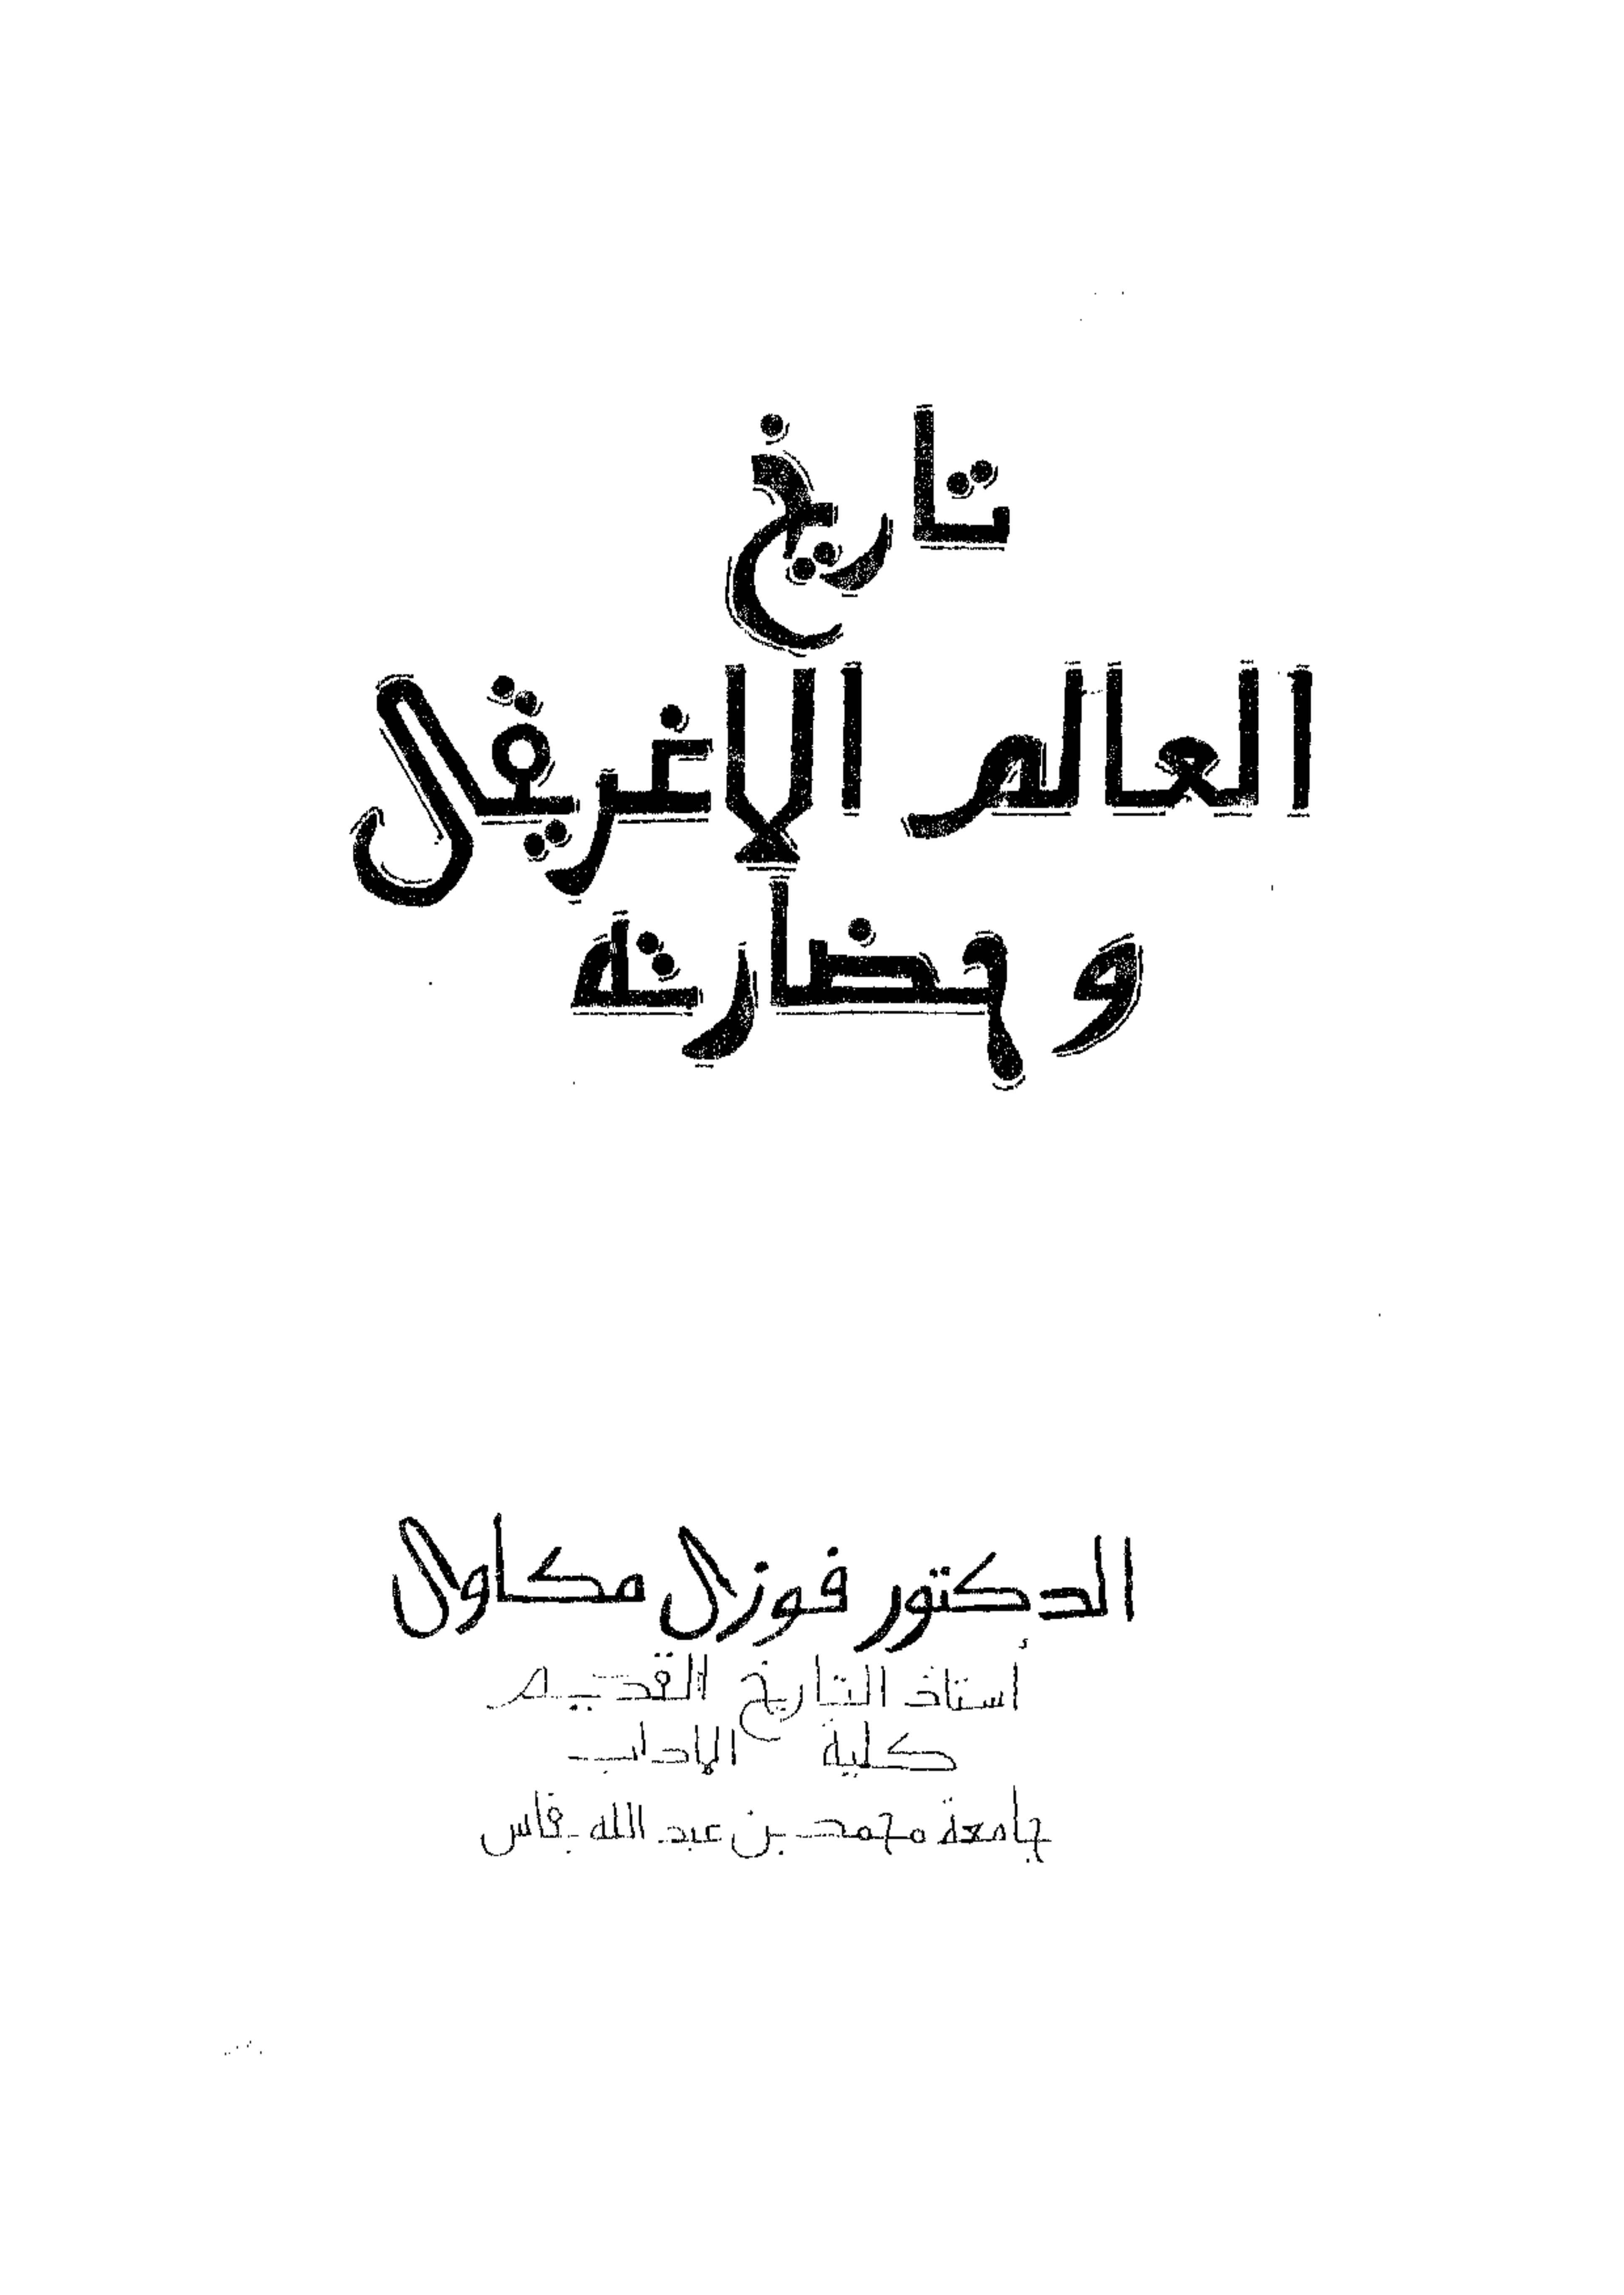 تاريخ
العالم الاغريقي
وحضارته
الدكتور فوزي مكاوي
أستاذ التاريخ القديم
كلية الاداب
جامعة محمد بن عبد الله بفاس